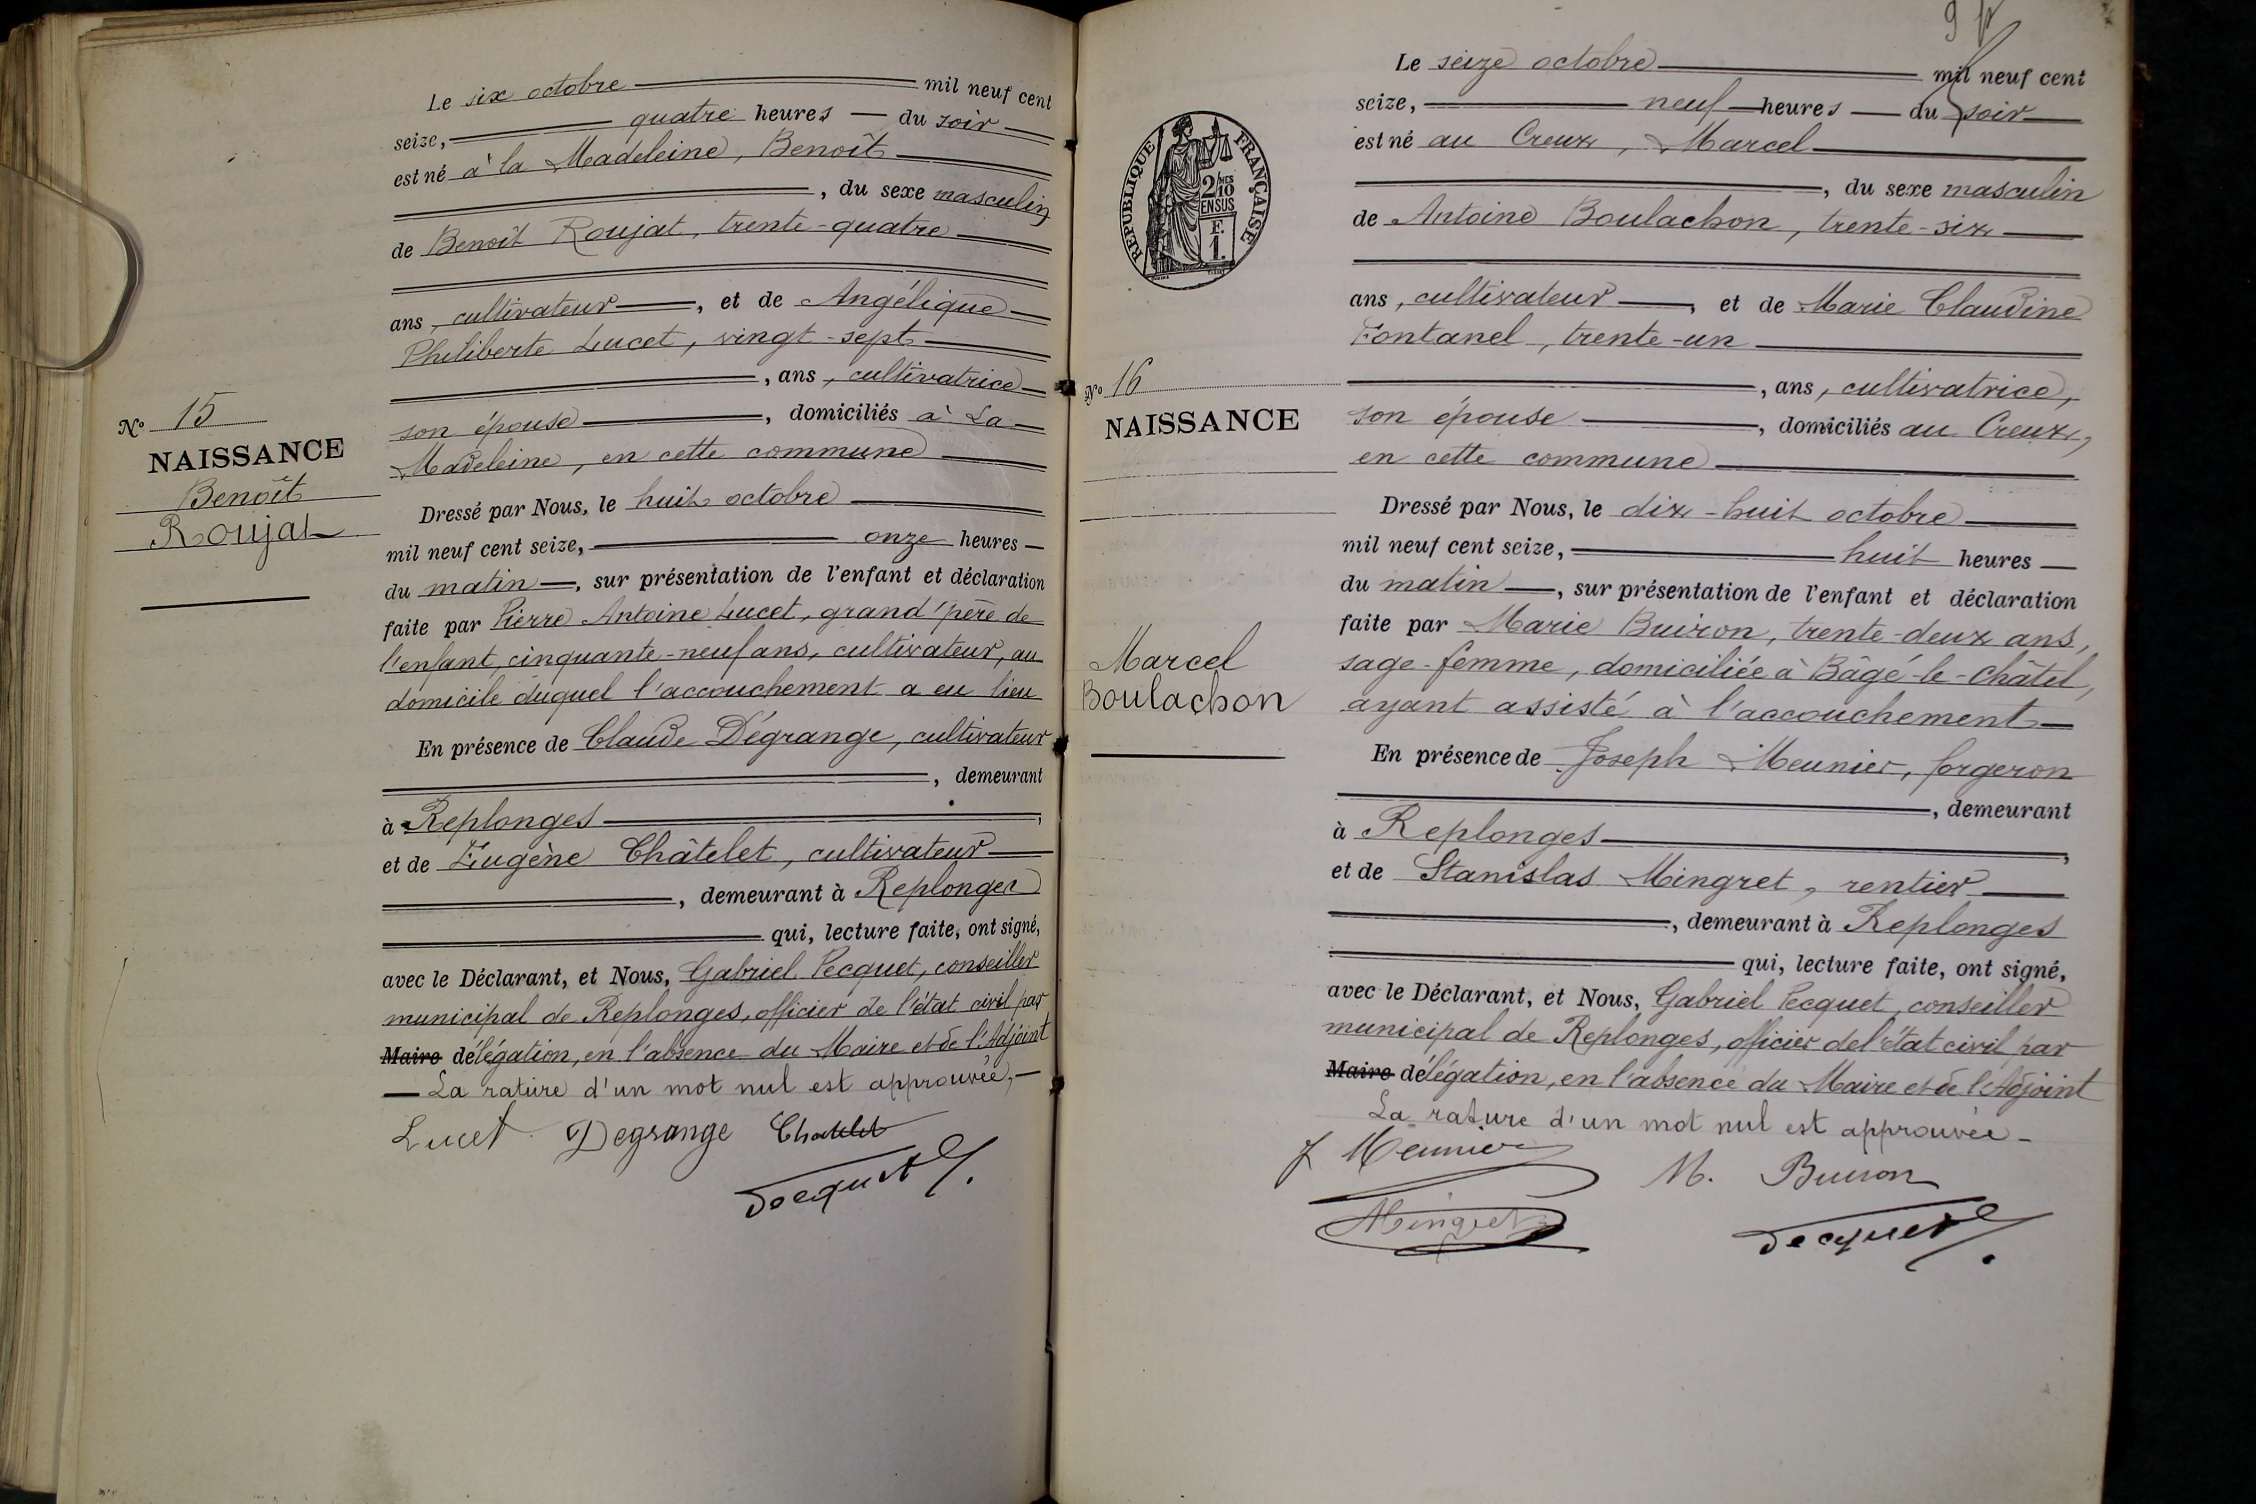 Le six octobre mil neuf cent
seize, quatre heures du soir
est né à la Madeleine, Benoît
, du sexe masculin
de Benoît Roujat, trente-quatre
ans, cultivateur, et de Angélique
Philiberte Lucet, vingt-sept
, ans, cultivatrice
son épouse, domiciliés à La
Madeleine, en cette commune
Dressé par Nous, le huit octobre
mil neuf cent seize, onze heures
du matin, sur présentation de l'enfant et déclaration
faite par Pierre Antoine Lucet, grand'père de
l'enfant, cinquante-neuf ans, cultivateur, au
domicile duquel l'accouchement a eu lieu
En présence de Claude Dégrange, cultivateur
, demeurant
à Replonges,
et de Eugène Châtelet, cultivateur
, demeurant à Replonges
qui, lecture faite, ont signé,
avec le Déclarant, et Nous, Gabriel Pecquet, conseiller
municipal de Replonges, officier de l'état civil par
Maire délégation, en l'absence du Maire et de l'Adjoint
La rature d'un mot nul est approuvée,
Lucet Degrange Chatelet
Pecquet
N° 15
NAISSANCE
Benoît
Roujat
9
Le seize octobre mil neuf cent
seize, neuf heures du soir
est né au Creux, Marcel
, du sexe masculin
de Antoine Boulachon, trente-six
ans, cultivateur, et de Marie Claudine
Fontanel, trente-un
, ans, cultivatrice,
son épouse, domiciliés au Creux,
en cette commune
Dressé par Nous, le dix-huit octobre
mil neuf cent seize, huit heures
du matin, sur présentation de l'enfant et déclaration
faite par Marie Buiron, trente-deux ans,
sage-femme, domiciliée à Bâgé-le-Châtel,
ayant assisté à l'accouchement
En présence de Joseph Meunier, forgeron
, demeurant
à Replonges,
et de Stanislas Mingret, rentier
, demeurant à Replonges
qui, lecture faite, ont signé,
avec le Déclarant, et Nous, Gabriel Pecquet, conseiller
municipal de Replonges, officier de l'état civil par
Maire délégation, en l'absence du Maire et de l'Adjoint
La rature d'un mot nul est approuvée
J Meunier
M. Buiron
Mingret
Pecquet
RÉPUBLIQUE FRANÇAISE
2/10MES
EN SUS
F.
1.
N° 16
NAISSANCE
Marcel
Boulachon